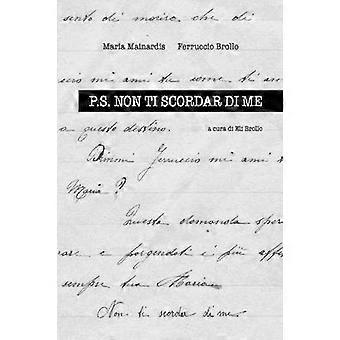 sento di morire che di
Maria Mainardis Ferruccio Brollo
cesco mi ami tu come ti an
P.S. NON TI SCORDAR DI ME
a questo destino.
a cura di Eli Brollo
Dimmi Ferruccio mi ami t
Maria?
Questa domanda sper
mare e porgendoti i più affe
sempre tua Maria
Non ti scordar di me